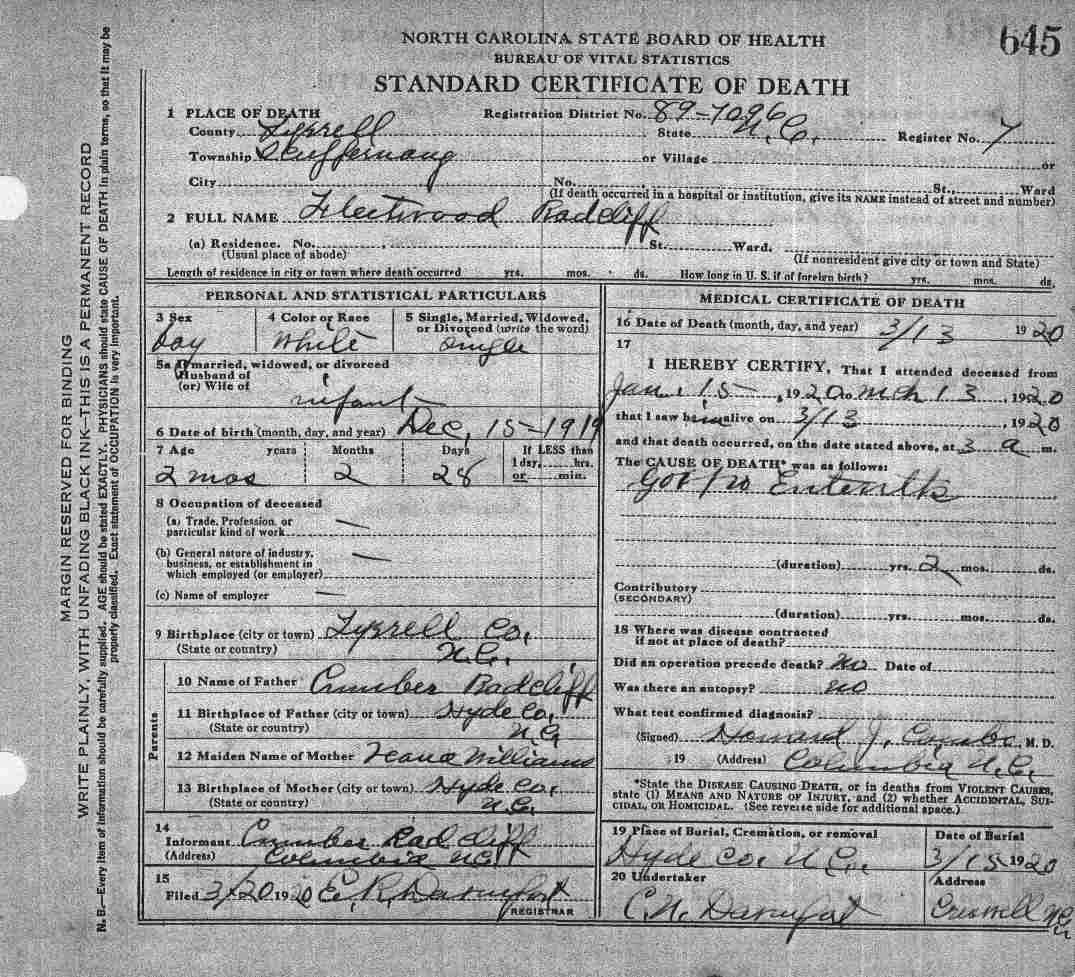 645
NORTH CAROLINA STATE BOARD OF HEALTH
BUREAU OF VITAL STATISTICS
STANDARD CERTIFICATE OF DEATH
MARGIN RESERVED FOR BINDING
WRITE PLAINLY, WITH UNFADING BLACK INK—THIS IS A PERMANENT RECORD
N. B.—Every item of information should be carefully supplied. AGE should be stated EXACTLY. PHYSICIANS should state CAUSE OF DEATH in plain terms, so that it may be
properly classified. Exact statement of OCCUPATION is very important.
1 PLACE OF DEATH Registration District No. 89-7096
County Tyrrell State N.C. Register No. 7
Township Scuppernong or Village or
City No. St., Ward
(If death occurred in a hospital or institution, give its NAME instead of street and number)
2 FULL NAME Fleetwood Radcliff
(a) Residence. No. St. Ward.
(Usual place of abode) (If nonresident give city or town and State)
Length of residence in city or town where death occurred yrs. mos. ds. How long in U. S. if of foreign birth? yrs. mos. ds.
PERSONAL AND STATISTICAL PARTICULARS
3 Sex 4 Color or Race 5 Single, Married, Widowed,
or Divorced (write the word)
boy White single
5a If married, widowed, or divorced
Husband of
(or) Wife of
infant
6 Date of birth (month, day, and year) Dec, 15-1919
7 Age years Months Days If LESS than
1 day, hrs.
or min.
2 mos 2 28
8 Occupation of deceased
(a) Trade, Profession, or
particular kind of work —
(b) General nature of industry,
business, or establishment in
which employed (or employer) —
(c) Name of employer —
9 Birthplace (city or town) Tyrrell Co,
(State or country) N.C.
Parents
10 Name of Father Cumber Radcliff
11 Birthplace of Father (city or town) Hyde Co,
(State or country) N.C
12 Maiden Name of Mother Williams
13 Birthplace of Mother (city or town) Hyde Co,
(State or country) N.C.
14
Informant Cumber Radcliff
(Address) Columbia N.C.
15
Filed 3/20 1920 E.R. Davenport
REGISTRAR
MEDICAL CERTIFICATE OF DEATH
16 Date of Death (month, day, and year) 3/13 1920
17
I HEREBY CERTIFY, That I attended deceased from
Jan. 15, 1920 to Mch 13, 1920
that I saw him alive on 3/13, 1920
and that death occurred, on the date stated above, at 3 a m.
The CAUSE OF DEATH* was as follows:
Gastro Enteritis
(duration) yrs. 2 mos. ds.
Contributory
(SECONDARY)
(duration) yrs. mos. ds.
18 Where was disease contracted
if not at place of death?
Did an operation precede death? No Date of
Was there an autopsy? no
What test confirmed diagnosis?
(Signed) Howard J. Combs, M. D.
, 19 (Address) Columbia N.C.
*State the DISEASE CAUSING DEATH, or in deaths from VIOLENT CAUSES,
state (1) MEANS AND NATURE OF INJURY, and (2) whether ACCIDENTAL, SUI-
CIDAL, OR HOMICIDAL. (See reverse side for additional space.)
19 Place of Burial, Cremation, or removal Date of Burial
Hyde Co, N.C. 3/15 1920
20 Undertaker Address
C.N. Davenport Creswell N.C.